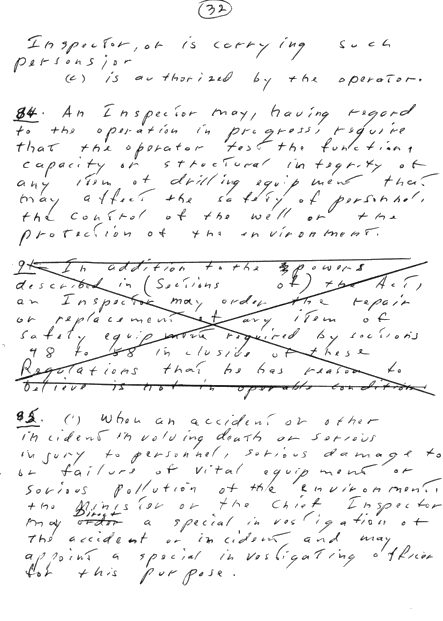 32
Inspector, or is carrying such
persons; or
(c) is authorized by the operator.
84. An Inspector may, having regard
to the operation in progress, require
that the operator test the function,
capacity or structural integrity of
any item of drilling equipment that
may affect the safety of personnel,
the control of the well or the
protection of the environment.
91. In addition to the powers
described in (Sections of) the Act,
an Inspector may order the repair
or replacement of any item of
safety equipment required by sections
48 to 58 inclusive of these
Regulations that he has reason to
believe is not in operable condition.
85. (1) When an accident or other
incident involving death or serious
injury to personnel, serious damage to
or failure of vital equipment or
serious pollution of the environment,
the Minister or the Chief Inspector
may order Direct a special investigation of
the accident or incident and may
appoint a special investigating officer
for this purpose.